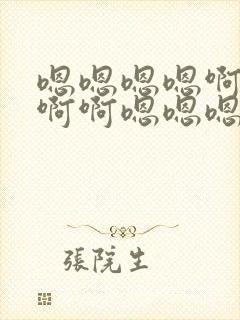 嗯嗯嗯嗯啊
啊啊嗯嗯嗯
張院生